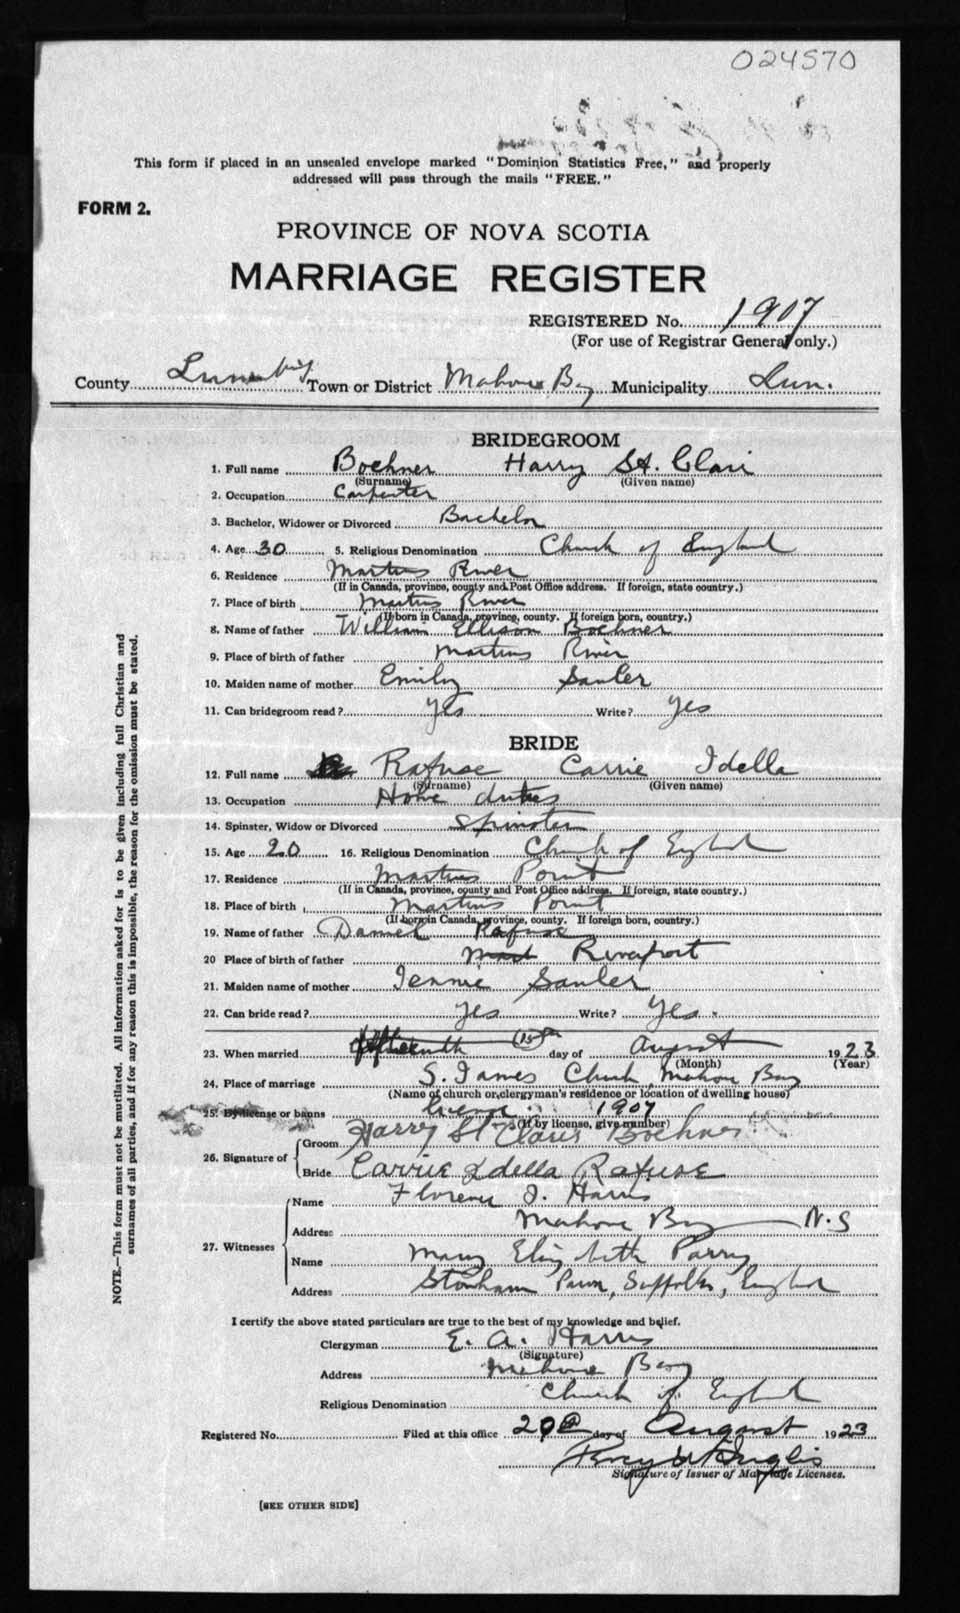 024570
This form if placed in an unsealed envelope marked "Dominion Statistics Free," and properly
addressed will pass through the mails "FREE."
FORM 2.
PROVINCE OF NOVA SCOTIA
MARRIAGE REGISTER
REGISTERED No. 1907
(For use of Registrar General only.)
County Lunenburg Town or District Mahone Bay Municipality Lun.
BRIDEGROOM
1. Full name Boehner Harry St. Clair
(Surname) (Given name)
2. Occupation Carpenter
3. Bachelor, Widower or Divorced Bachelor
4. Age 30 5. Religious Denomination Church of England
6. Residence Martins River
(If in Canada, province, county and Post Office address. If foreign, state country.)
7. Place of birth Martins River
(If born in Canada, province, county. If foreign born, country.)
8. Name of father William Ellison Boehner
9. Place of birth of father Martins River
10. Maiden name of mother Emily Sauler
11. Can bridegroom read? Yes Write? Yes
BRIDE
12. Full name Rafuse Carrie Idella
(Surname) (Given name)
13. Occupation Home duties
14. Spinster, Widow or Divorced Spinster
15. Age 20 16. Religious Denomination Church of England
17. Residence Martins Point
(If in Canada, province, county and Post Office address. If foreign, state country.)
18. Place of birth Martins Point
(If born in Canada, province, county. If foreign born, country.)
19. Name of father Daniel Rafuse
20 Place of birth of father Riverport
21. Maiden name of mother Jennie Sauler
22. Can bride read? Yes Write? Yes.
23. When married fifteenth (15th day of August 1923
(Month) (Year)
24. Place of marriage S. James Church, Mahone Bay
(Name of church or clergyman's residence or location of dwelling house)
25. By license or banns license 1907
(If by license, give number)
26. Signature of Groom Harry St Clair Boehner
Bride Carrie Idella Rafuse
27. Witnesses Name Florence J. Harris
Address Mahone Bay N.S
Name Mary Elizabeth Parry
Address Stonham Suffolk, England
I certify the above stated particulars are true to the best of my knowledge and belief.
Clergyman E. A. Harris
(Signature)
Address Mahone Bay
Religious Denomination Church of England
Registered No. Filed at this office day of August 1923
Signature of Issuer of Marriage Licenses.
[SEE OTHER SIDE]
NOTE.—This form must not be mutilated. All information asked for is to be given including full Christian and
surnames of all parties, and if for any reason this is impossible, the reason for the omission must be stated.